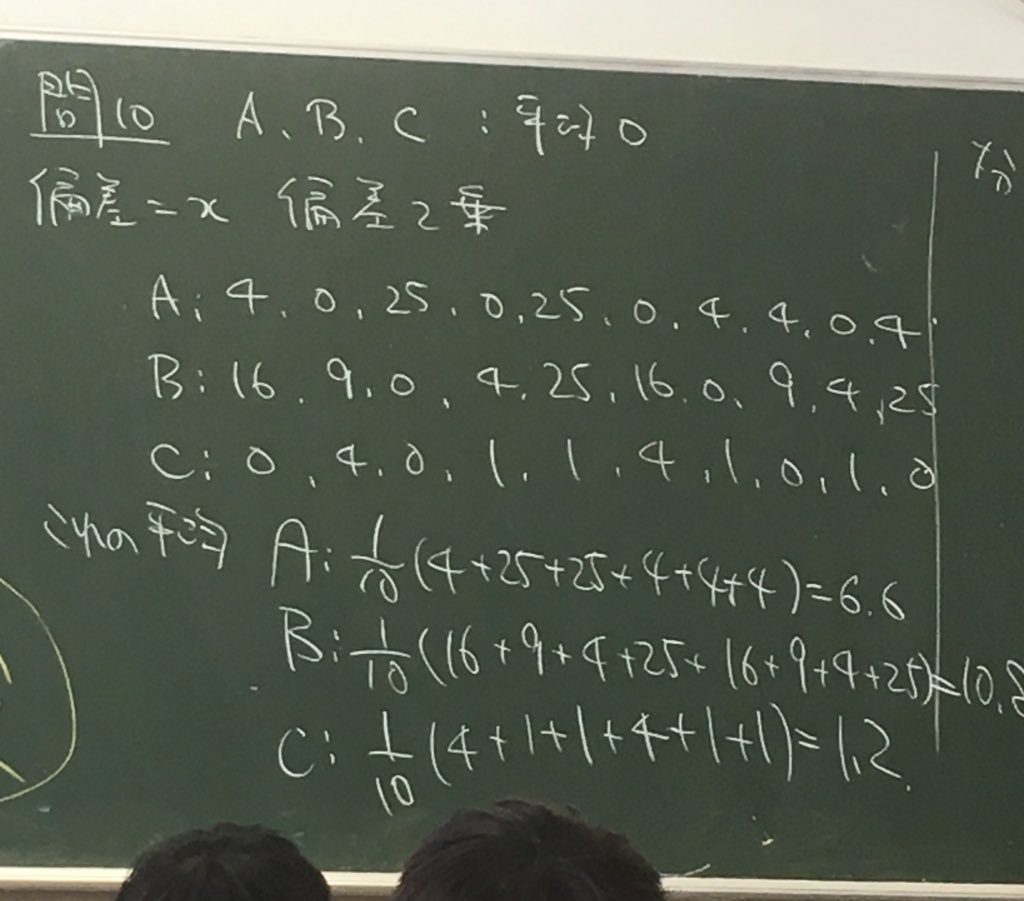 問10 A、B、C：平均0
偏差=x 偏差2乗
A: 4, 0, 25, 0, 25, 0, 4, 4, 0, 4
B: 16, 9, 0, 4, 25, 16, 0, 9, 4, 25
C: 0, 4, 0, 1, 1, 4, 1, 0, 1, 0
これの平均 A: 1/10(4+25+25+4+4+4)=6.6
B: 1/10(16+9+4+25+16+9+4+25)=10.8
C: 1/10(4+1+1+4+1+1)=1.2
分